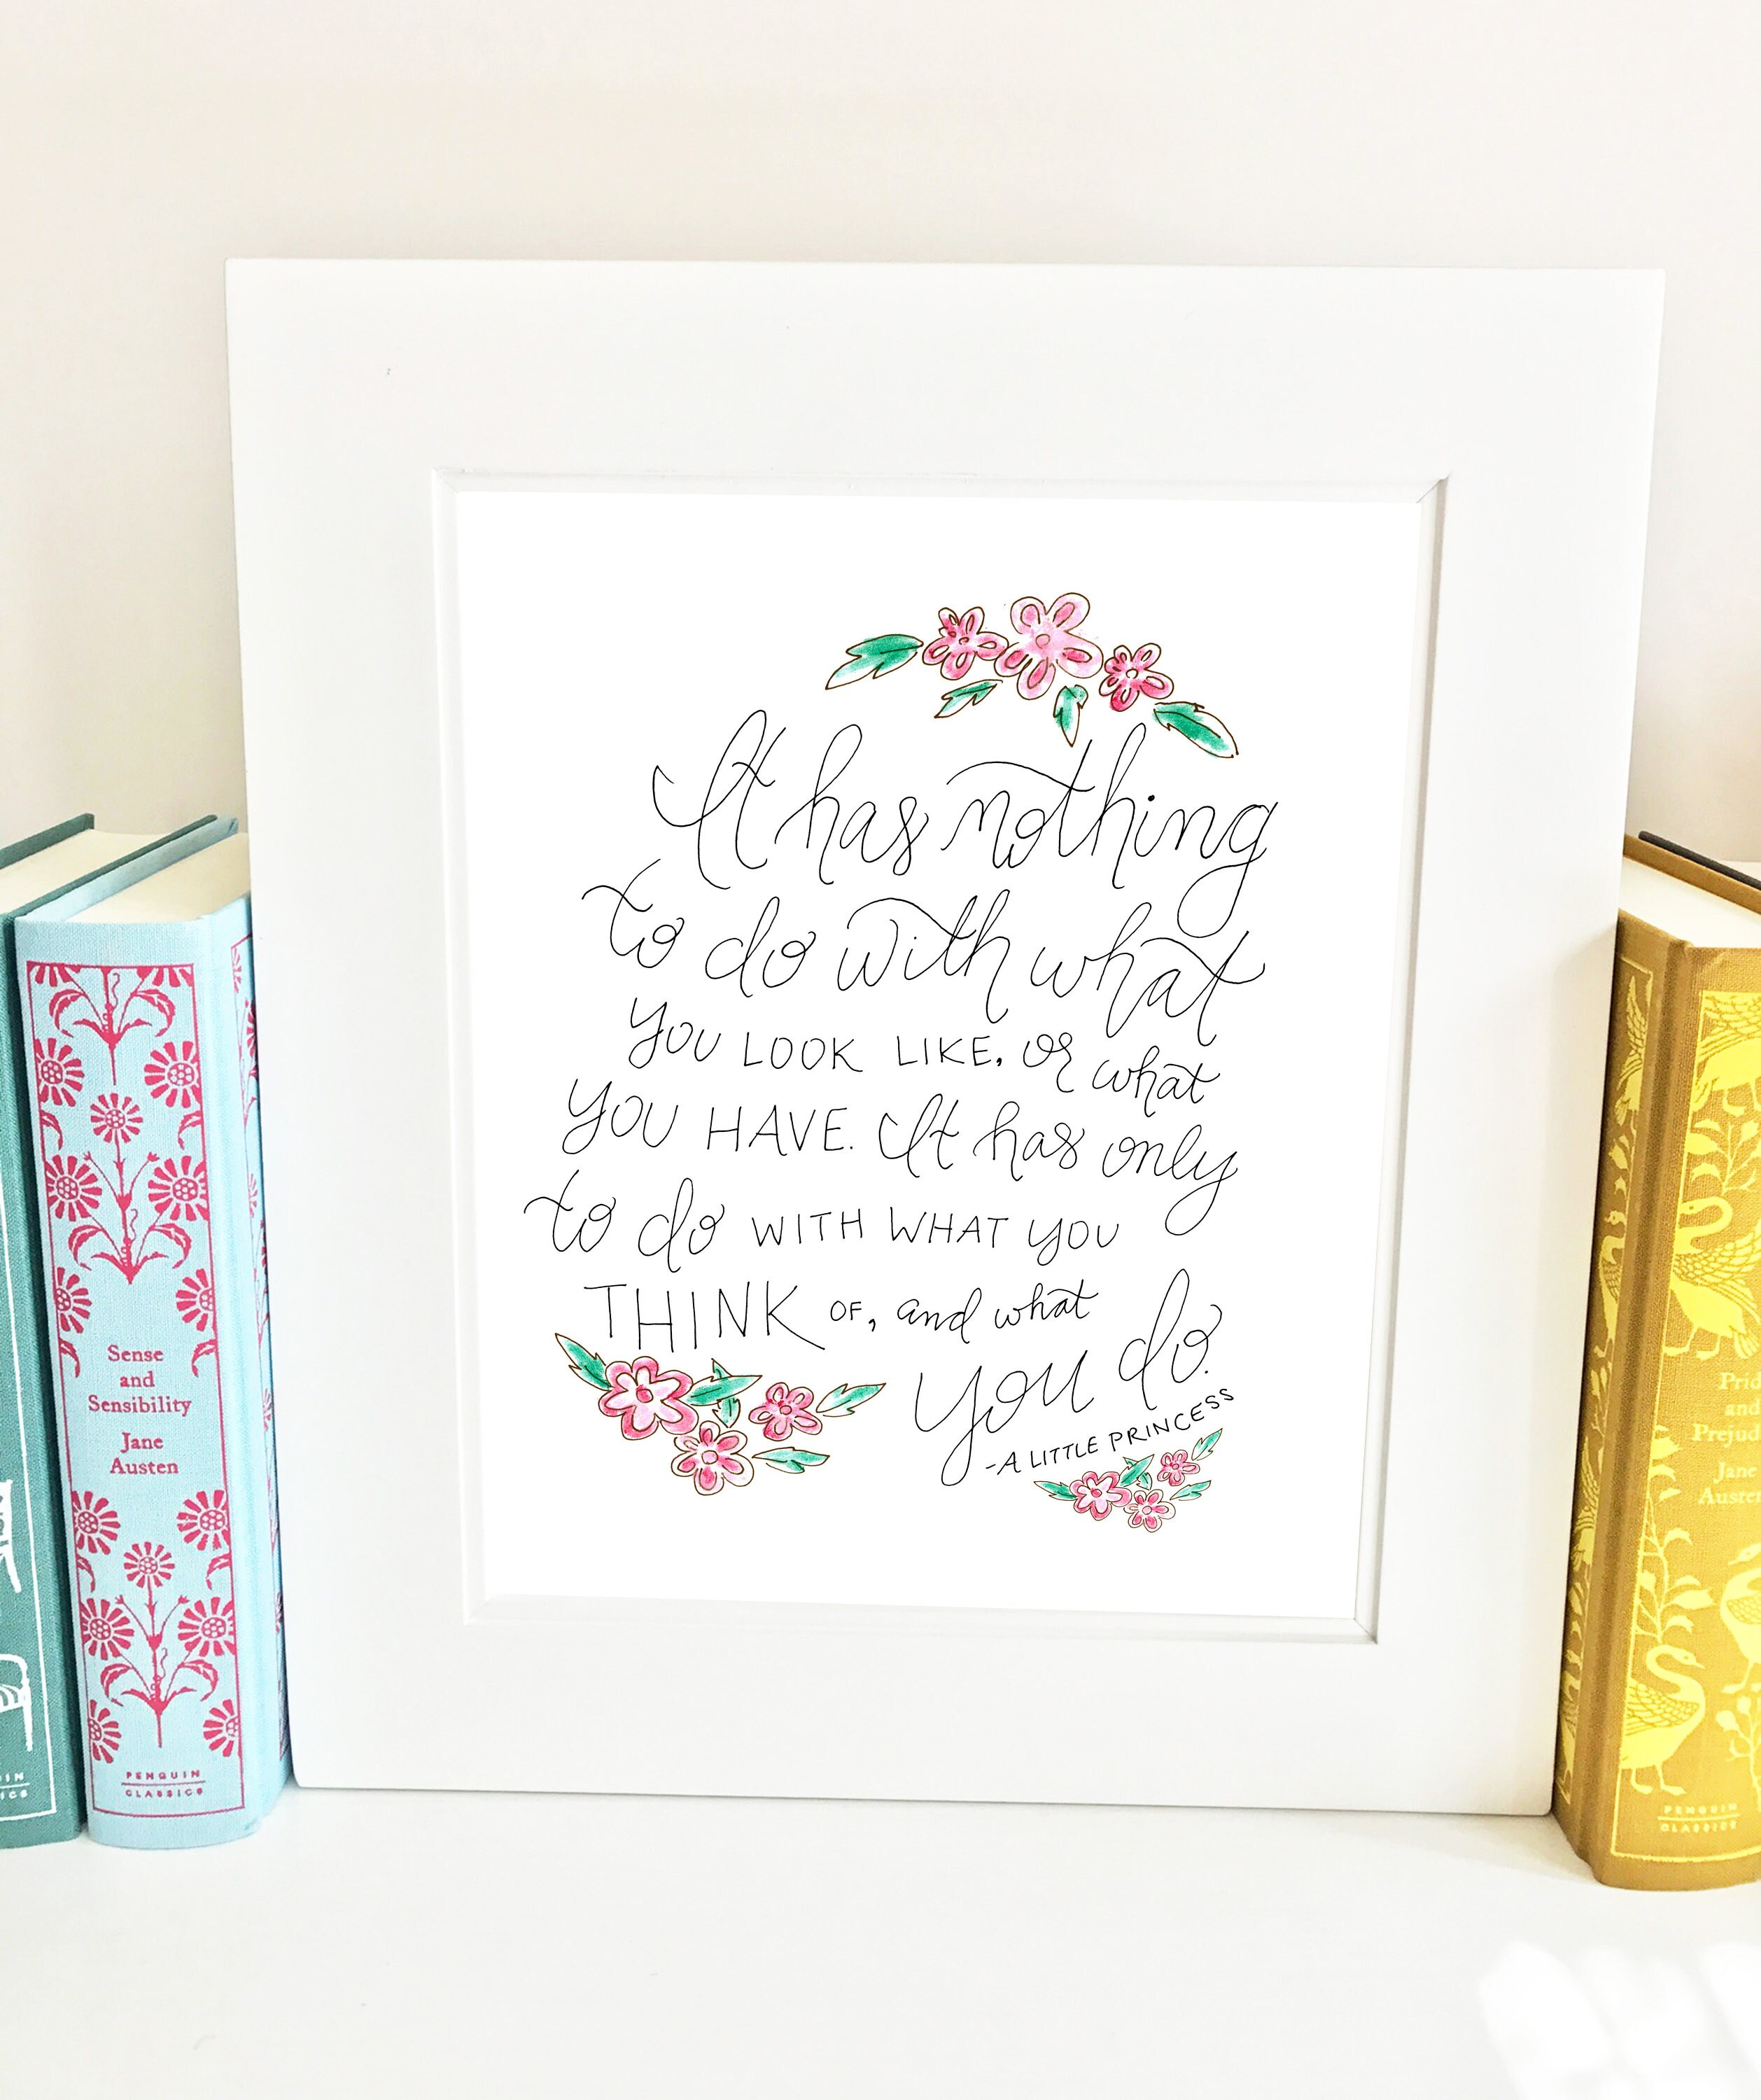 It has nothing
to do with what
you LOOK LIKE, or what
you HAVE. It has only
to do WITH WHAT you
THINK OF, and what
you do.
-A LITTLE PRINCESS
Sense
and
Sensibility
Jane
Austen
PENGUIN
CLASSICS
and
Jane
PENGUIN
CLASSICS